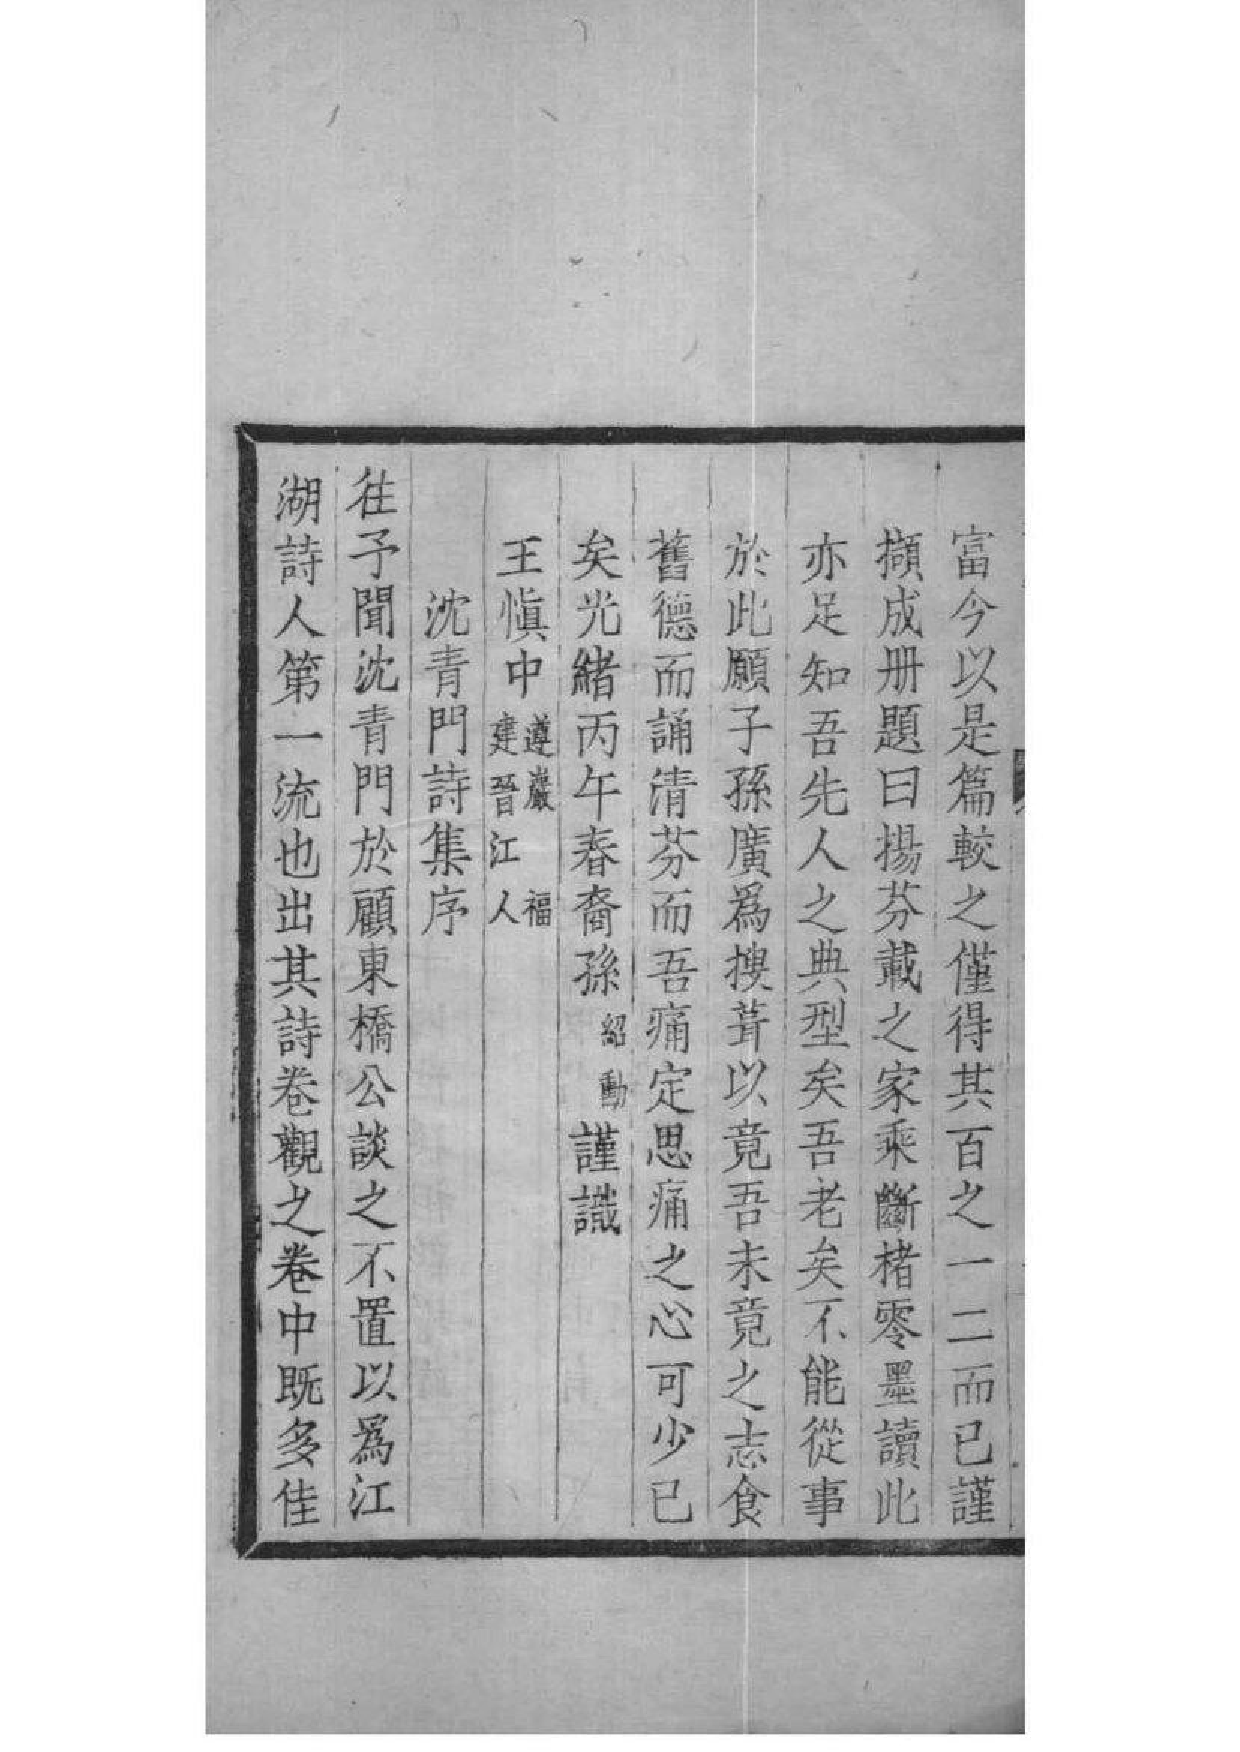 富今以是篇較之僅得其百之一二而已謹
擷成册題曰揚芬藏之家乘斷楮零墨讀此
亦足知吾先人之典型矣吾老矣不能從事
於此願子孫廣爲搜葺以竟吾未竟之志食
舊德而誦清芬而吾痛定思痛之心可少已
矣光緒丙午春裔孫紹勳謹識
王愼中遵巖福建晉江人
沈青門詩集序
往予聞沈青門於顧東橋公談之不置以爲江
湖詩人第一流也出其詩卷觀之卷中既多佳